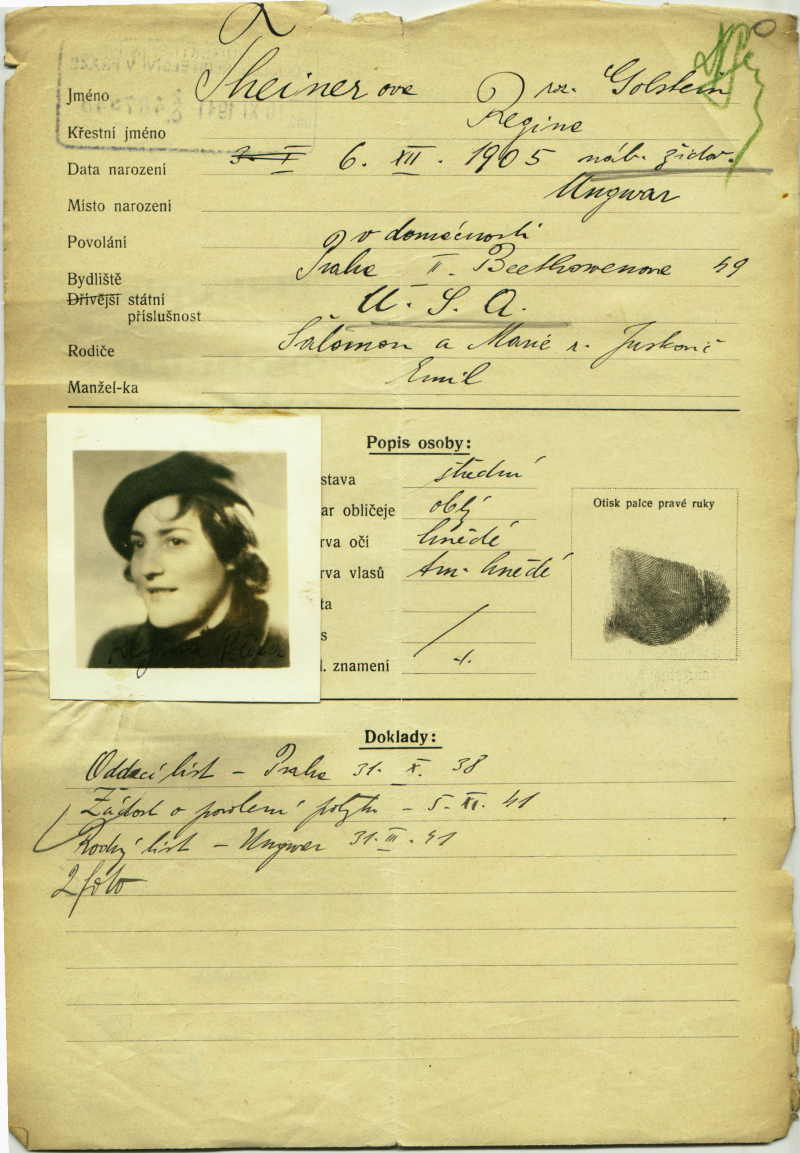 Jméno Theinerova roz. Golstein
Křestní jméno Regine
Data narození 3. I 6. XII. 1905 náb. židov.
Místo narození Ungwar
Povolání v domácnosti
Bydliště Praha II. Beethowenova 49
Dřívější státní
příslušnost U.S.A.
Rodiče Salomon a Marie r.
Manžel-ka Emil
Popis osoby:
stava střední
ar obličeje oblý
rva očí hnědé
rva vlasů tm. hnědé
ta
s
l. znamení
Otisk palce pravé ruky
Doklady:
Oddací list – Praha 31. X. 38
Žádost o povolení pobytu – 5. XI. 41
Rodný list – Ungwar 31. III. 41
2 foto